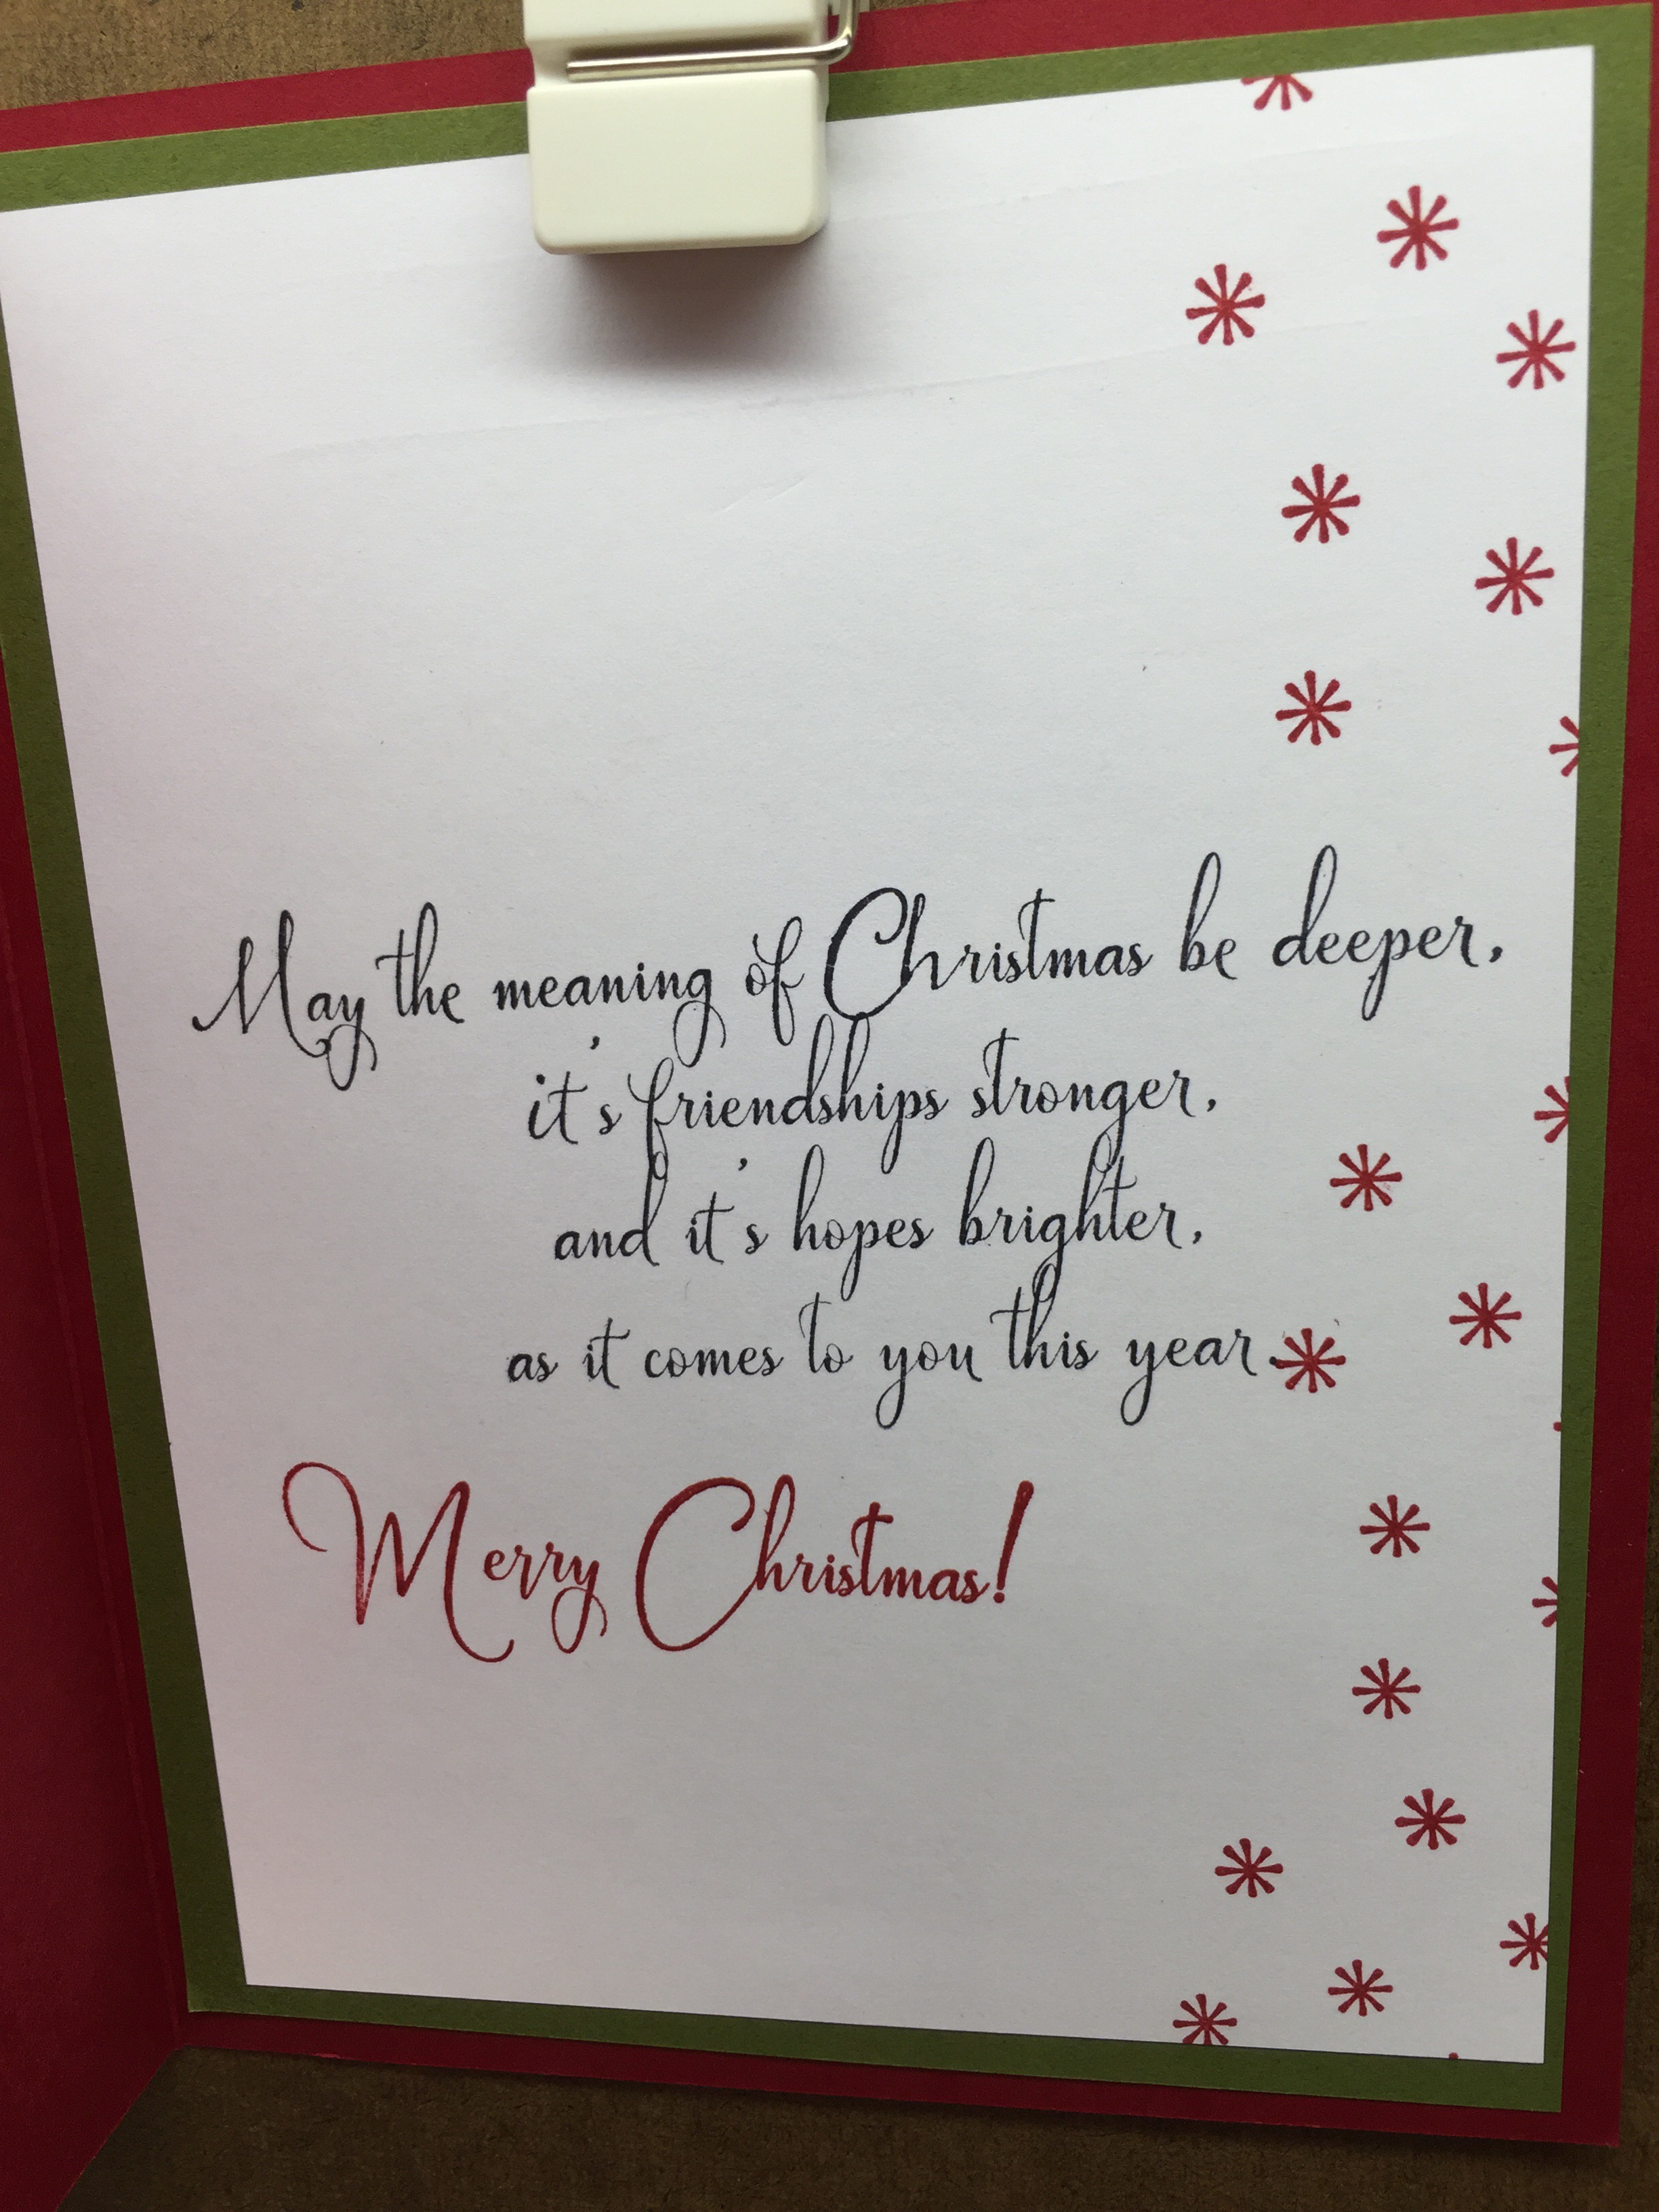 May the meaning of Christmas be deeper,
it's friendships stronger,
and it's hopes brighter,
as it comes to you this year.
Merry Christmas!